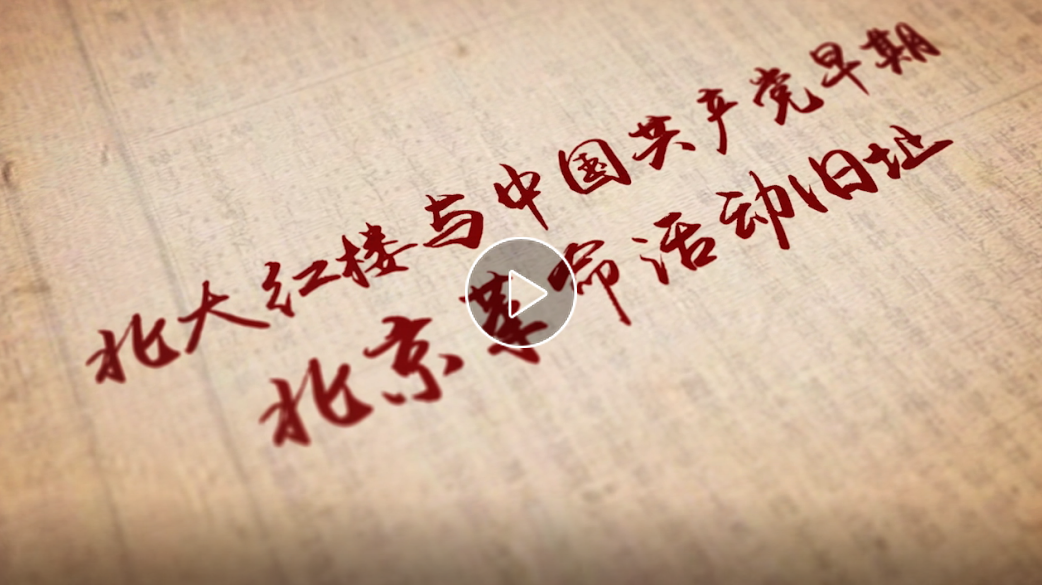 北大红楼与中国共产党早期
北京革命活动旧址